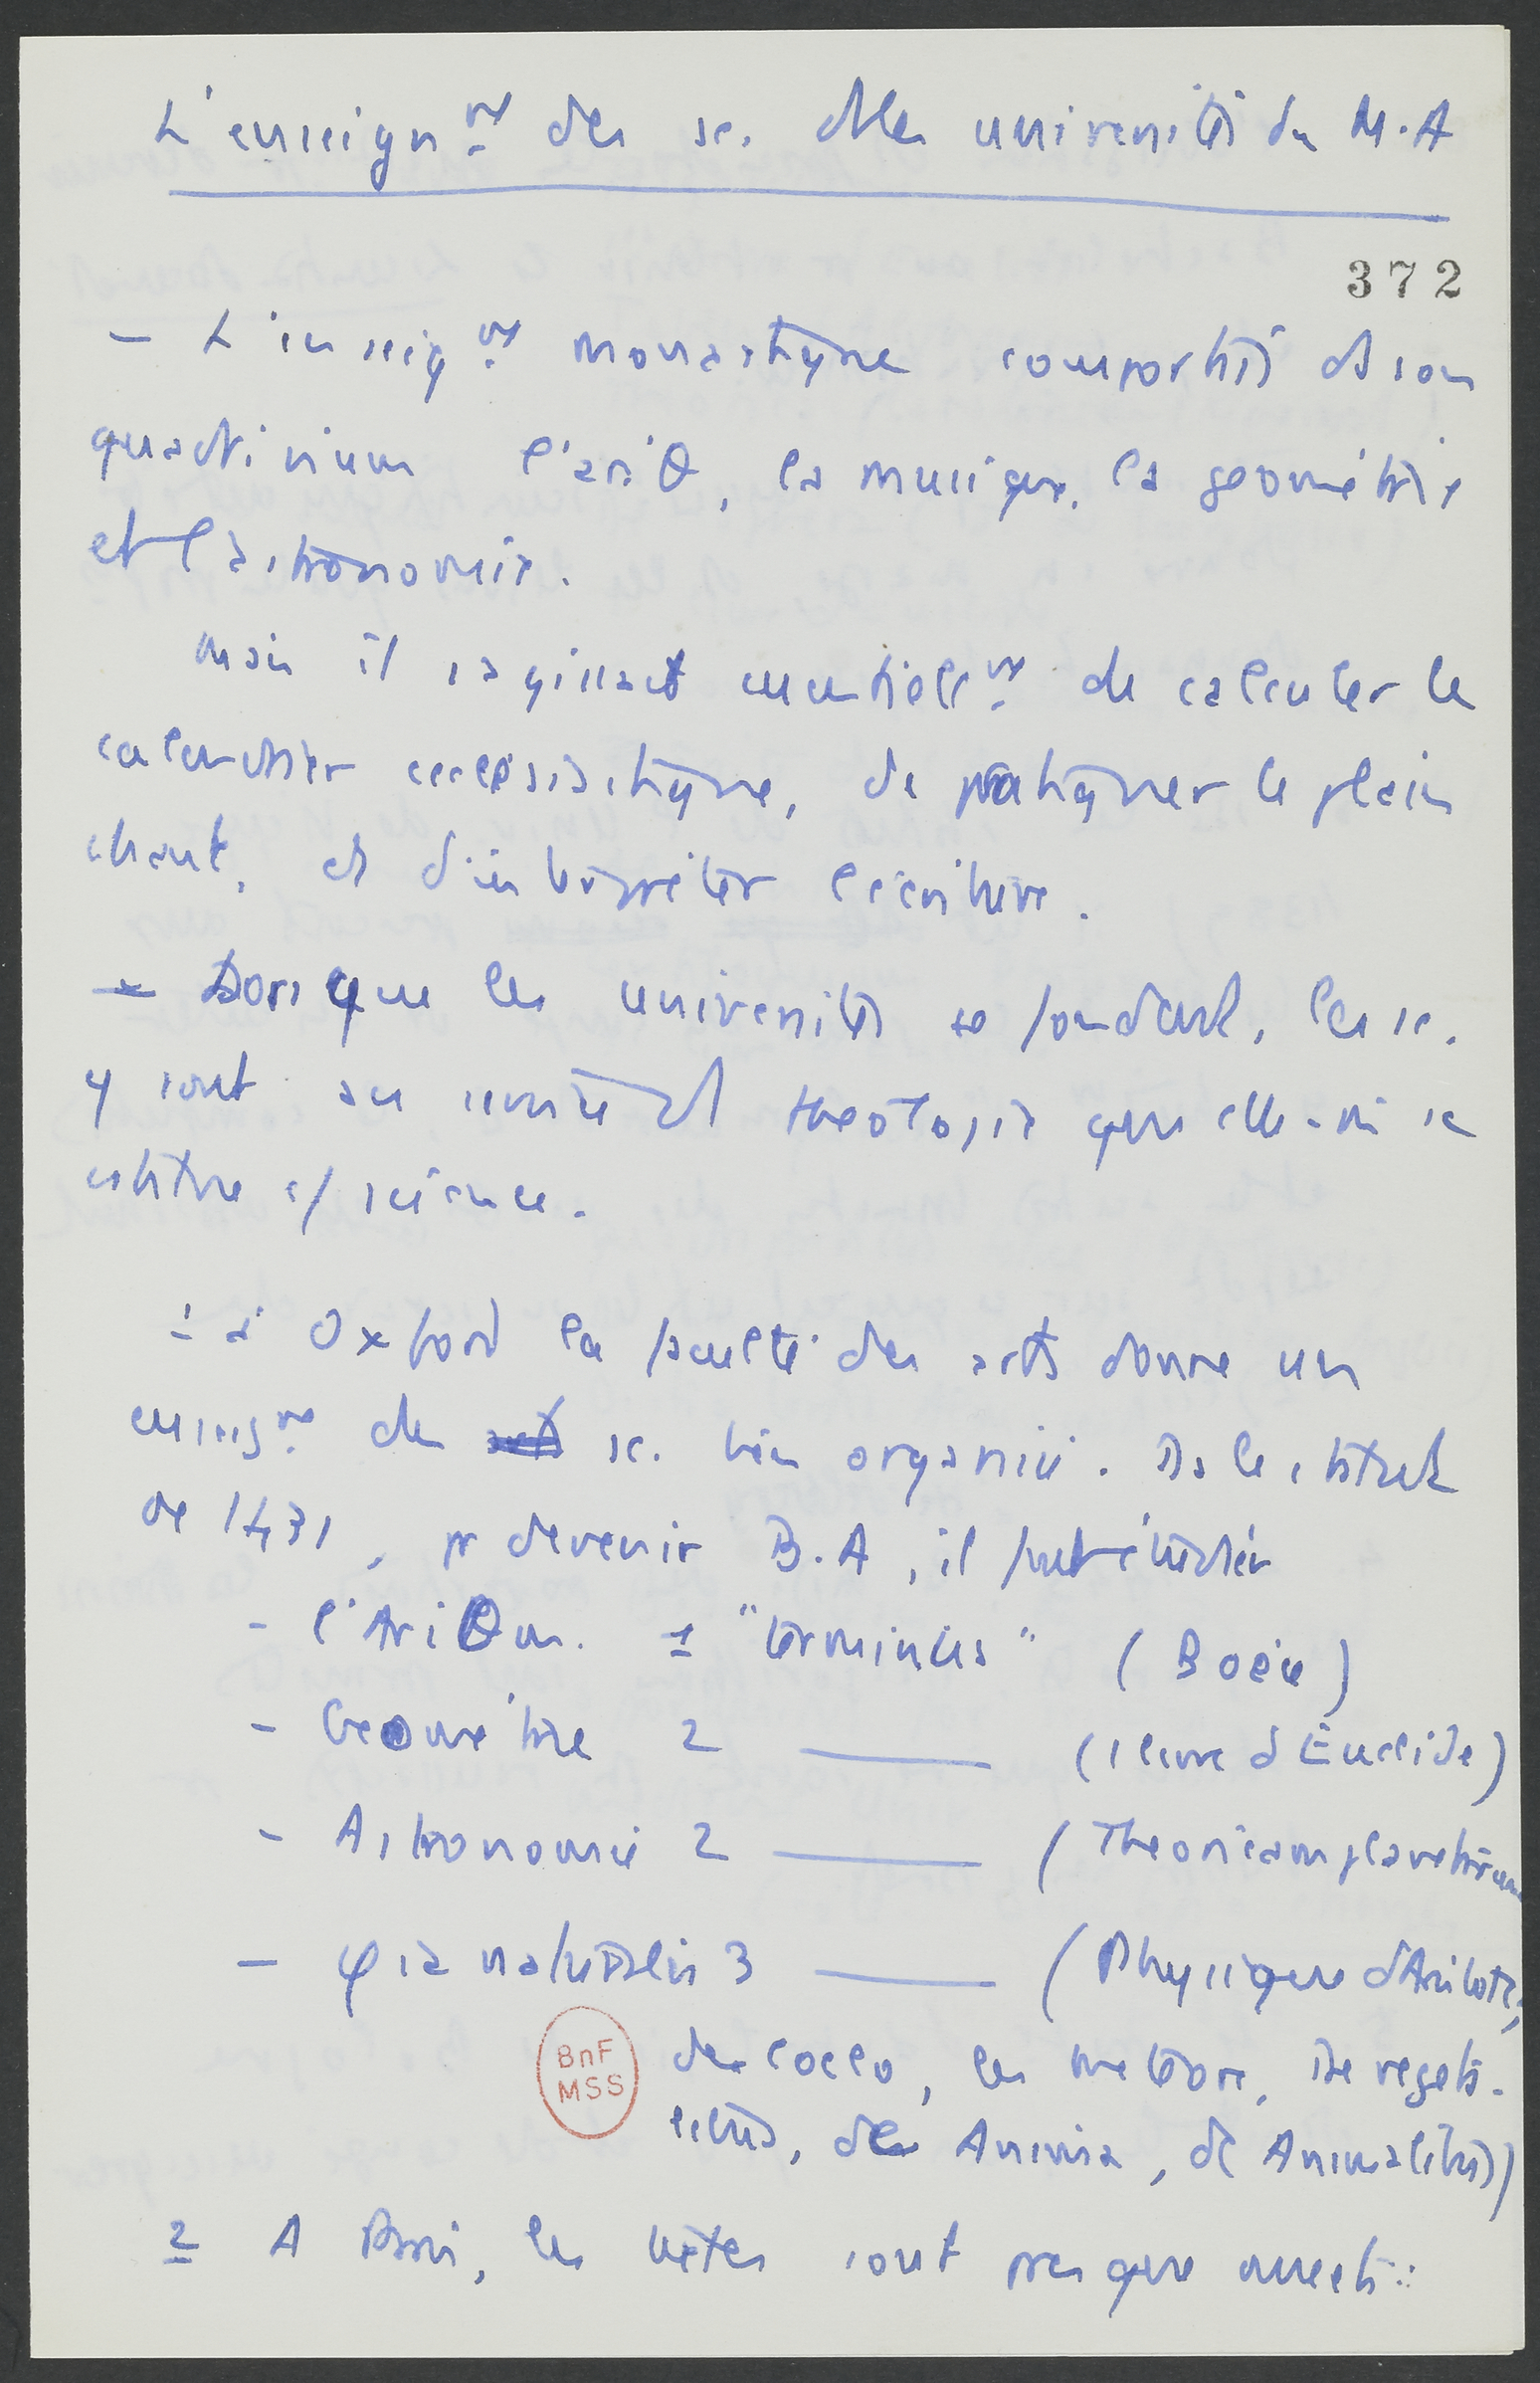 L'enseignt des sc. ds les universités du M.A
372
– L'enseigt monastique comportait ds son
quadrivium l'ariθ, la musique, la géométrie
et l'astronomie.
mais il s'agissait essentiellt de calculer le
calendrier ecclésiastique, de pratiquer le plain
chant, et d'interpréter l'écriture.
– Lorsque les universités se fondent, les sc.
y sont au service de théologie qui elle-m se
constitue c/ science.
1 à Oxford la faculté des arts donne un
enseigt de sc. bien organisé. Ds le statut
de 1431, pr devenir B.A, il faut étudier
- l'Ariθm. 1 "terminus" (Boèce)
- Géométrie 2 ——— (livre d'Euclide)
- Astronomie 2 ——— (Theoricam planetarum
– φia naturalis 3 ——— (Physique d'Aristote,
de coelo, les météore, De vegeta-
libus, de Anima, de Animalibus)
2 A Paris, les textes sont presque muets :
BnF
MSS